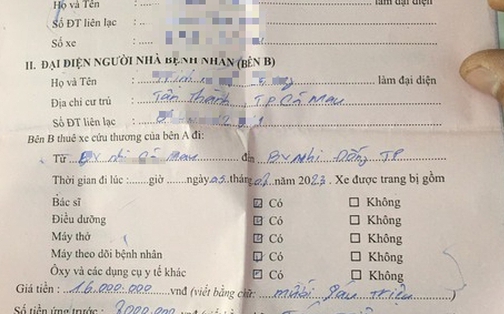 Họ và Tên : làm đại diện
Số ĐT liên lạc :
Số xe :
II. ĐẠI DIỆN NGƯỜI NHÀ BỆNH NHÂN (BÊN B)
Họ và Tên : làm đại diện
Địa chỉ cư trú : Tân Thành TP Cà Mau
Số ĐT liên lạc :
Bên B thuê xe cứu thương của bên A đi:
Từ BV nhi Cà Mau đến BV Nhi Đồng TP
Thời gian đi lúc :......giờ ......ngày 05 tháng 07 năm 2023. Xe được trang bị gồm
Bác sĩ Có Không
Điều dưỡng Có Không
Máy thở Có Không
Máy theo dõi bệnh nhân Có Không
Ôxy và các dụng cụ y tế khác Có Không
Giá tiền : 16.000.000 vnđ (viết bằng chữ: mười sáu triệu
Số tiền ứng trước : 8000.000 vnđ (viết bằng